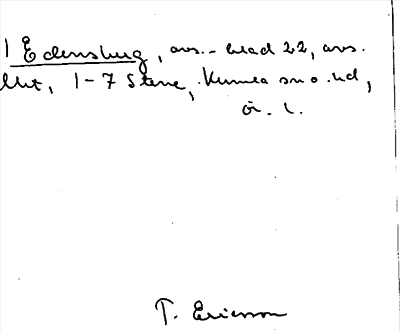 1 Edensburg, avs.-blad 22, avs.
1-7 Stene, Kumla sn o. hd,
ö. l.
T. Ericsson